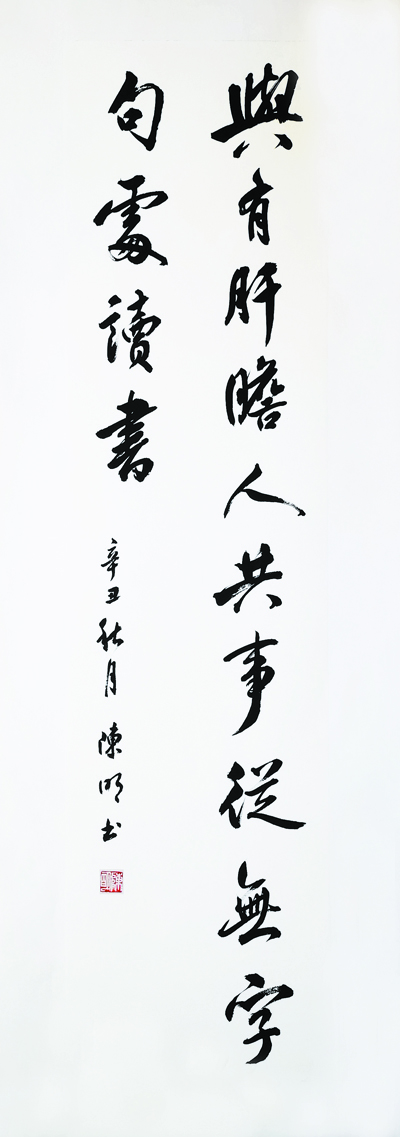 與有肝膽人共事從無字
句處讀書
辛丑秋月 陳明书